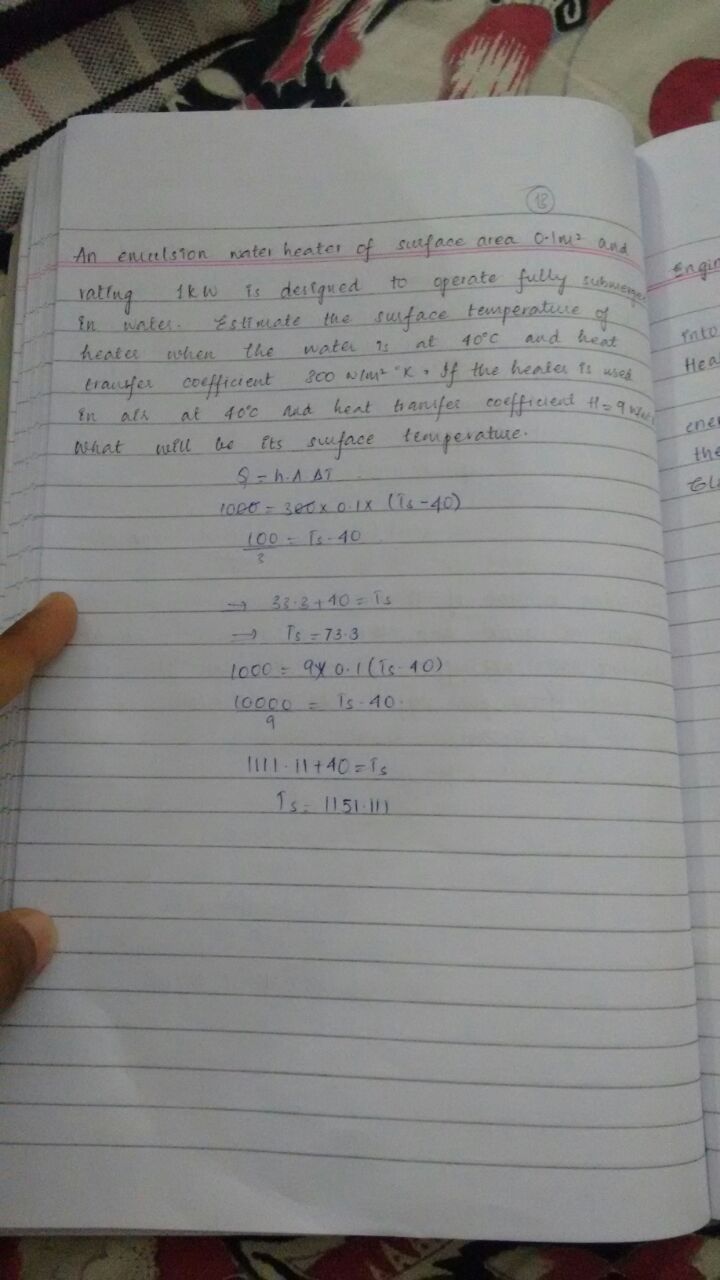 13
An emulsion water heater of surface area 0.1m² and
rating 1kW is designed to operate fully submerge
in water. Estimate the surface temperature of
heater when the water is at 40°C and heat
transfer coefficient 300 W/m² °K. If the heater is used
in air at 40°C and heat transfer coefficient H = 9
What will be its surface temperature.
Q = h.A ΔT
1000 = 300 x 0.1 x (Ts - 40)
100/3 = Ts - 40
→ 33.3 + 40 = Ts
⇒ Ts = 73.3
1000 = 9 x 0.1 (Ts - 40)
10000/9 = Ts - 40.
1111.11 + 40 = Ts
Ts = 1151.111
Engin
into
Hea
ener
the